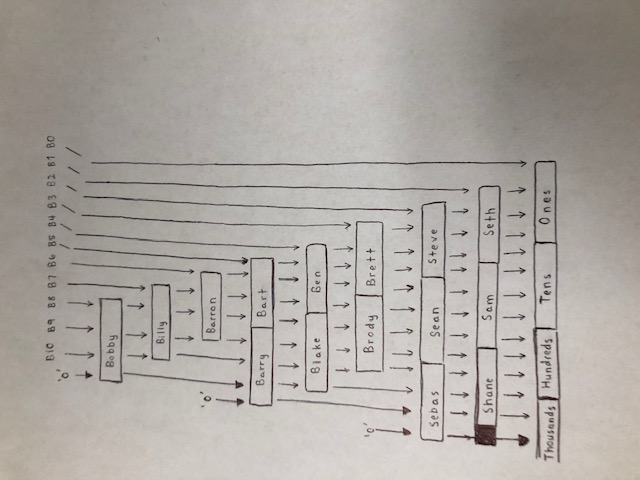 B10 B9 B8 B7 B6 B5 B4 B3 B2 B1 B0
'0'
Bobby
Billy
'0'
Barron
Barry Bart
Blake Ben
'0'
Brody Brett
Sebas Sean Steve
Shane Sam Seth
Thousands Hundreds Tens Ones